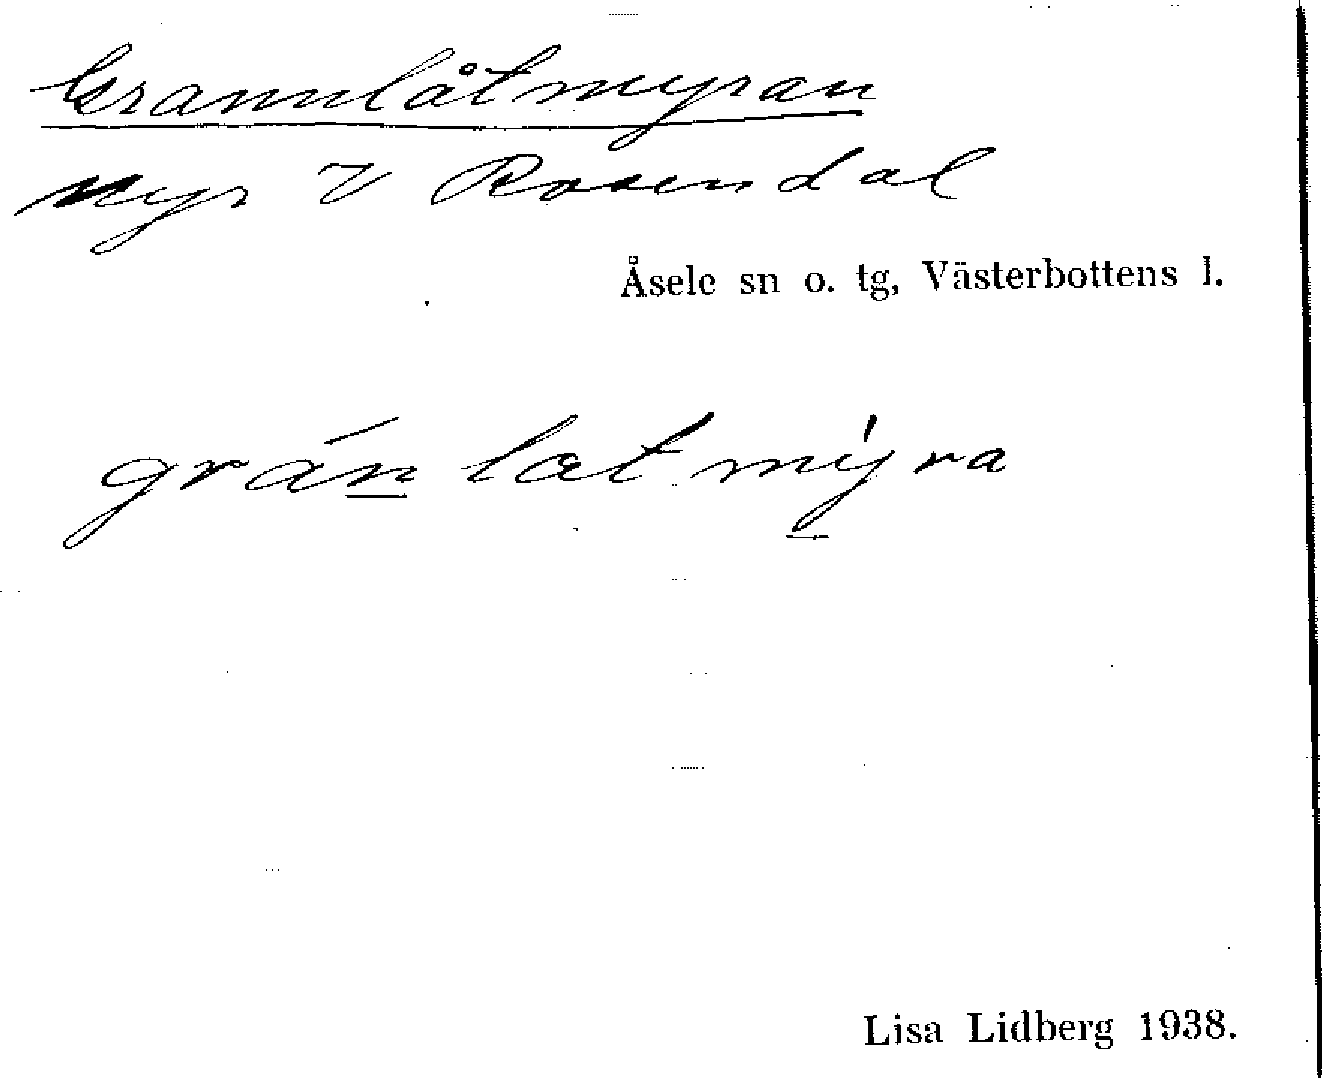 Grannlåtmyran
Myr V Rosendal
Åsele sn o. tg, Västerbottens l.
grán lat mýra
Lisa Lidberg 1938.